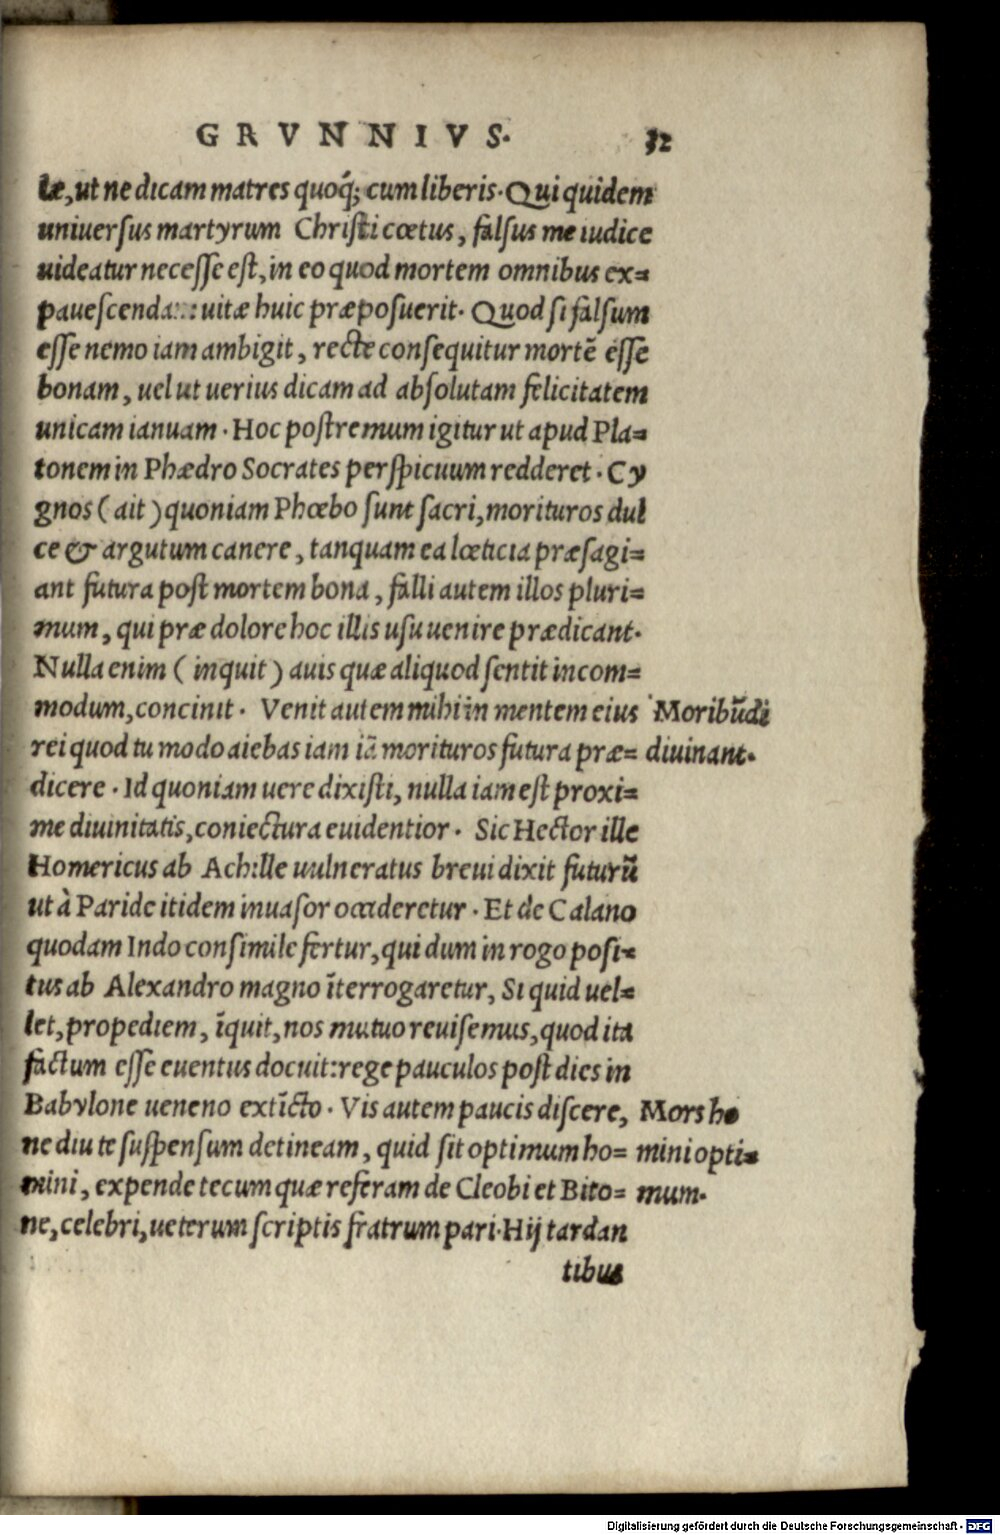 GRVNNIVS. 32
le, ut ne dicam matres quoq́; cum liberis. Qui quidem
uniuersus martyrum Christi cœtus, falsus me iudice
uideatur necesse est, in eo quod mortem omnibus ex=
pauescenda uitæ huic præposuerit. Quod si falsum
esse nemo iam ambigit, recte consequitur mortē esse
bonam, uel ut uerius dicam ad absolutam felicitatem
unicam ianuam. Hoc postremum igitur ut apud Pla=
tonem in Phædro Socrates perspicuum redderet. Cy
gnos (ait) quoniam Phœbo sunt sacri, morituros dul
ce & argutum canere, tanquam ea lœticia præsagi=
ant futura post mortem bona, falli autem illos pluri=
mum, qui præ dolore hoc illis usu uenire prædicant.
Nulla enim (inquit) auis quæ aliquod sentit incom=
modum, concinit. Venit autem mihi in mentem eius
rei quod tu modo aiebas iam iā morituros futura præ=
dicere. Id quoniam uere dixisti, nulla iam est proxi=
me diuinitatis, coniectura euidentior. Sic Hector ille
Homericus ab Achille uulneratus breui dixit futurū
ut à Paride itidem inuasor occideretur. Et de Calano
quodam Indo consimile fertur, qui dum in rogo posi=
tus ab Alexandro magno īterrogaretur, Si quid uel=
let, propediem, īquit, nos mutuo reuisemus, quod ita
factum esse euentus docuit: rege pauculos post dies in
Babylone ueneno extīcto. Vis autem paucis discere,
ne diu te suspensum detineam, quid sit optimum ho=
mini, expende tecum quæ referam de Cleobi et Bito=
ne, celebri, ueterum scriptis fratrum pari. Hij tardan
tibus
Moribūdi
diuinant.
Mors ho
mini opti=
mum.
Digitalisierung gefördert durch die Deutsche Forschungsgemeinschaft - DFG